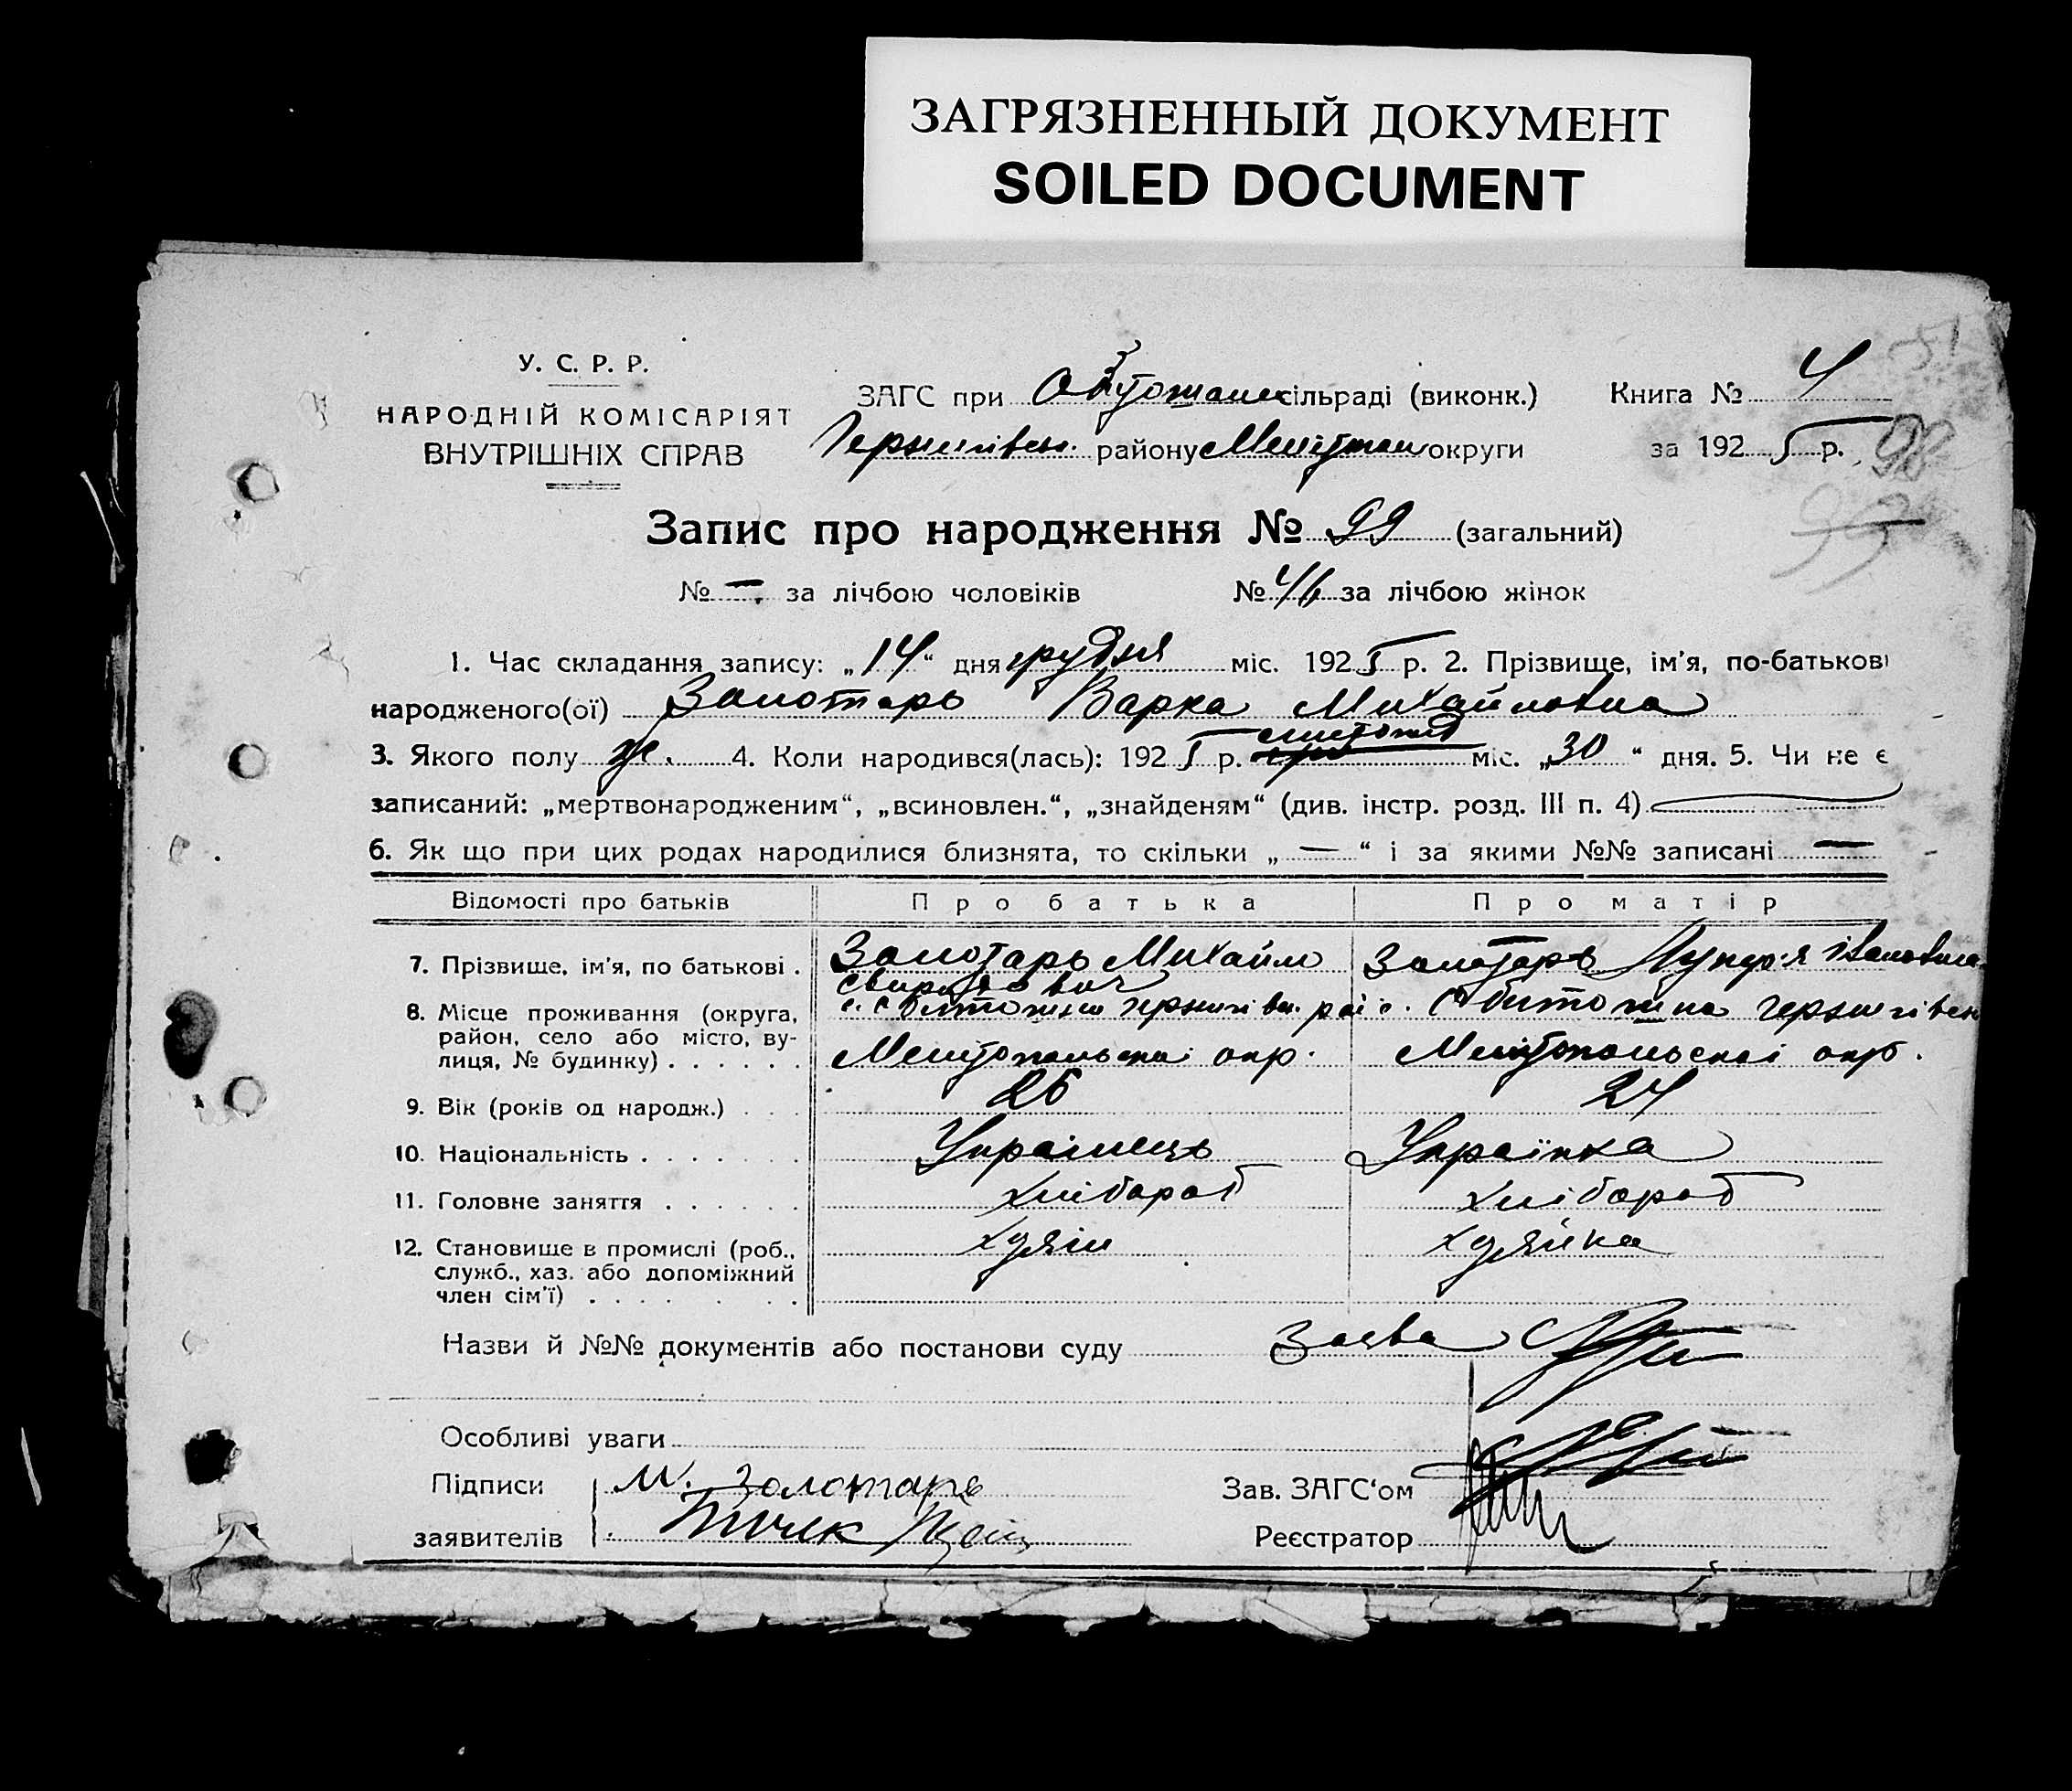 ЗАГРЯЗНЕННЫЙ ДОКУМЕНТ
SOILED DOCUMENT
У. С. Р. Р.
НАРОДНІЙ КОМІСАРІЯТ
ВНУТРІШНІХ СПРАВ
ЗАГС при сільраді (виконк.)
Чернигівск. району Меліт округи
Книга № 4
за 1925 р. 98
Запис про народження № 99 (загальний)
№ — за лічбою чоловіків № 46 за лічбою жінок
1. Час складання запису: „14“ дня грудня міс. 1925 р. 2. Прізвище, ім'я, по-батькові
народженого(ої) Золотарь Варка Михайловна
3. Якого полу ж. 4. Коли народився(лась): 1925 р. листопад міс. „30“ дня. 5. Чи не є
записаний: „мертвонародженим“, „всиновлен.“, „знайденям“ (див. інстр. розд. III п. 4)
6. Як що при цих родах народилися близнята, то скільки „—“ і за якими №№ записані —
Відомості про батьків Про батька Про матір
7. Прізвище, ім'я, по батькові . Золотарь Михайло Золотарь Лукер'я Івановна
Свиридович
8. Місце проживання (округа, район, село або місто, вулиця, № будинку) . . . . . .
с. Обіточна чернигівск. рай с. Обіточна чернигівск
Мелітопольскої окр. Мелітопольскої окр.
9. Вік (років од народж.) . . . 26 24
10. Національність . . . . . . . Українець Українка
11. Головне заняття . . . . . . хлібороб хлібороб
12. Становище в промислі (роб., служб., хаз. або допоміжний член сім'ї) . . . . . . хдзяін хдзяйка
Назви й №№ документів або постанови суду Заява
Особливі уваги
Підписи М. Золотарь Зав. ЗАГС'ом
заявителів Реєстратор